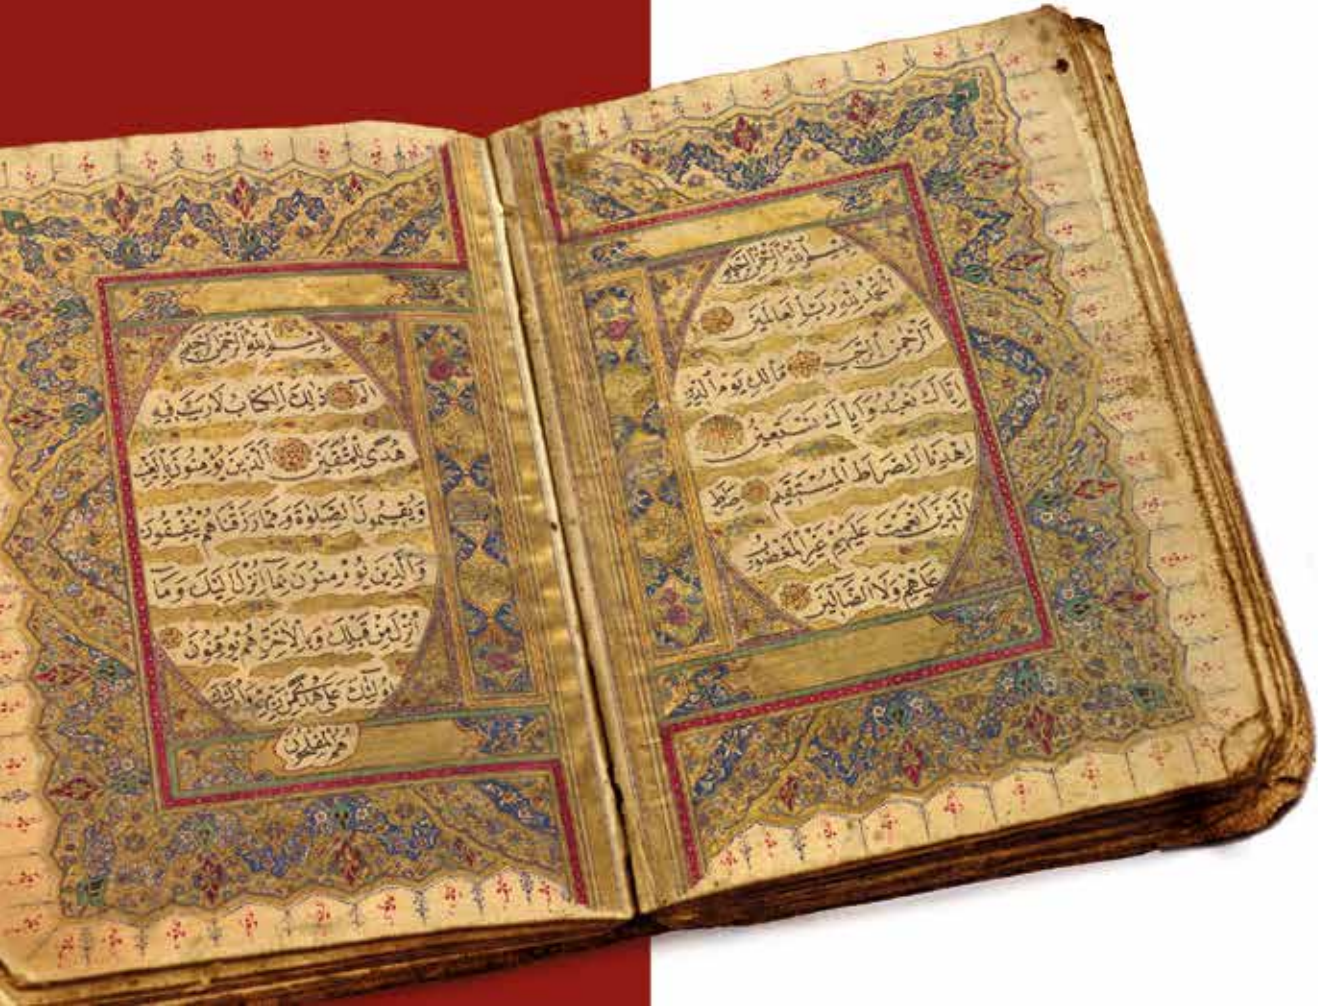 بسم الله الرحمن الرحيم
الحمد لله رب العالمين
الرحمن الرحيم مالك يوم الدين
اياك نعبد واياك نستعين
اهدنا الصراط المستقيم صراط
الذين انعمت عليهم غير المغضوب
عليهم ولا الضالين
بسم الله الرحمن الرحيم
الم ذلك الكتاب لا ريب فيه
هدى للمتقين الذين يؤمنون بالغيب
ويقيمون الصلوة ومما رزقناهم ينفقون
والذين يؤمنون بما انزل اليك وما
انزل من قبلك وبالاخرة هم يوقنون
اولئك على هدى من ربهم واولئك
هم المفلحون